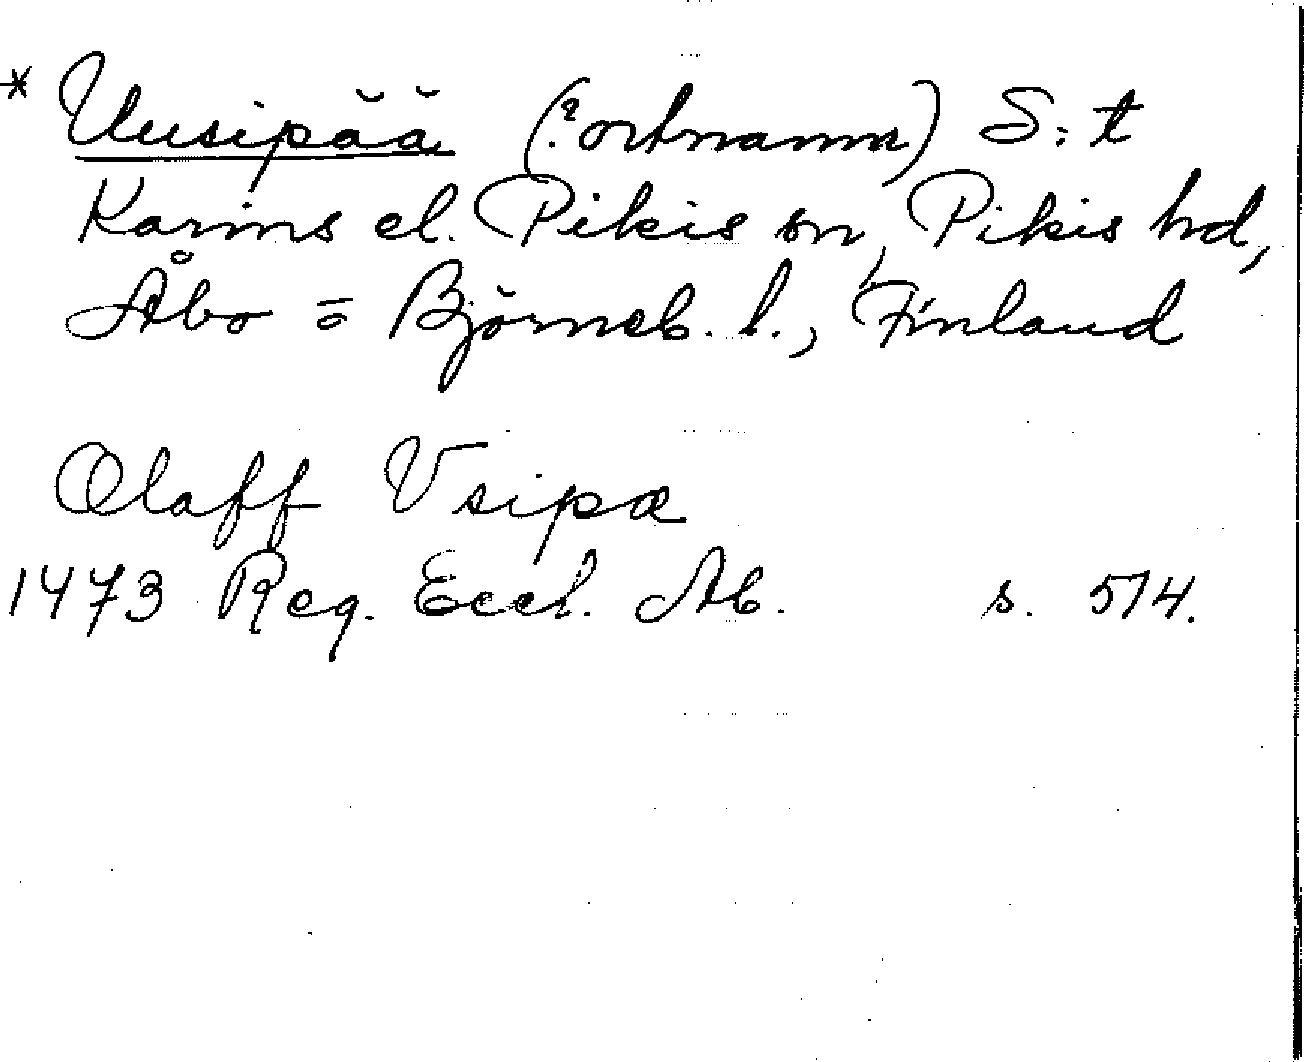 * Uusipää (? ortnamn) S:t
Karins el. Pikis sn, Pikis hd,
Åbo = Björneb. l., Finland
Olaff Vsipæ
1473 Reg. Eccl. Ab. s. 514.